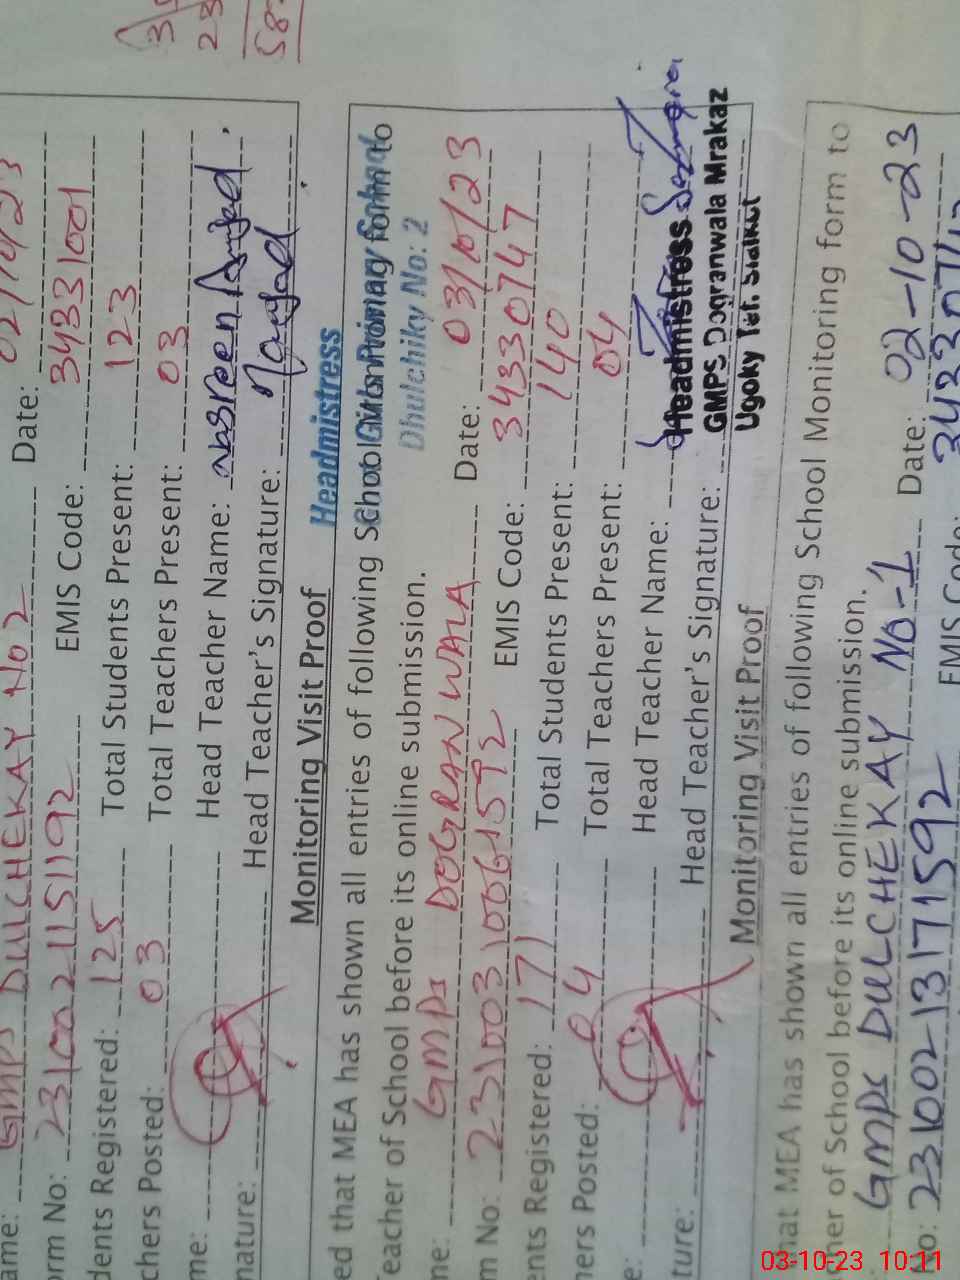 ame: GMPS DULCHEKAY No 2 Date: 02/10/23
orm No: 2310021151192 EMIS Code: 34331001
dents Registered: 125 Total Students Present: 123
chers Posted: 03 Total Teachers Present: 03
me: Head Teacher Name: Nabreen Amjed
nature: Head Teacher's Signature:
Headmistress
Dhulchiky No: 2
Monitoring Visit Proof
ed that MEA has shown all entries of following School Monitoring form to
Teacher of School before its online submission.
me: GMPS DOGRANWALA Date: 03/10/23
m No: 231003100615592 EMIS Code: 34330747
ents Registered: 171 Total Students Present: 140
hers Posted: 04 Total Teachers Present: 04
e: Head Teacher Name:
ture: Head Teacher's Signature:
Headmistress
GMPS Dogranwala Mrakaz
Ugoky Tet. Sialkot
Monitoring Visit Proof
hat MEA has shown all entries of following School Monitoring form to
cher of School before its online submission.
GMPS DULCHEKAY No-1 Date: 02-10-23
No: 23100213171592 EMIS Code:
03-10-23 10:11